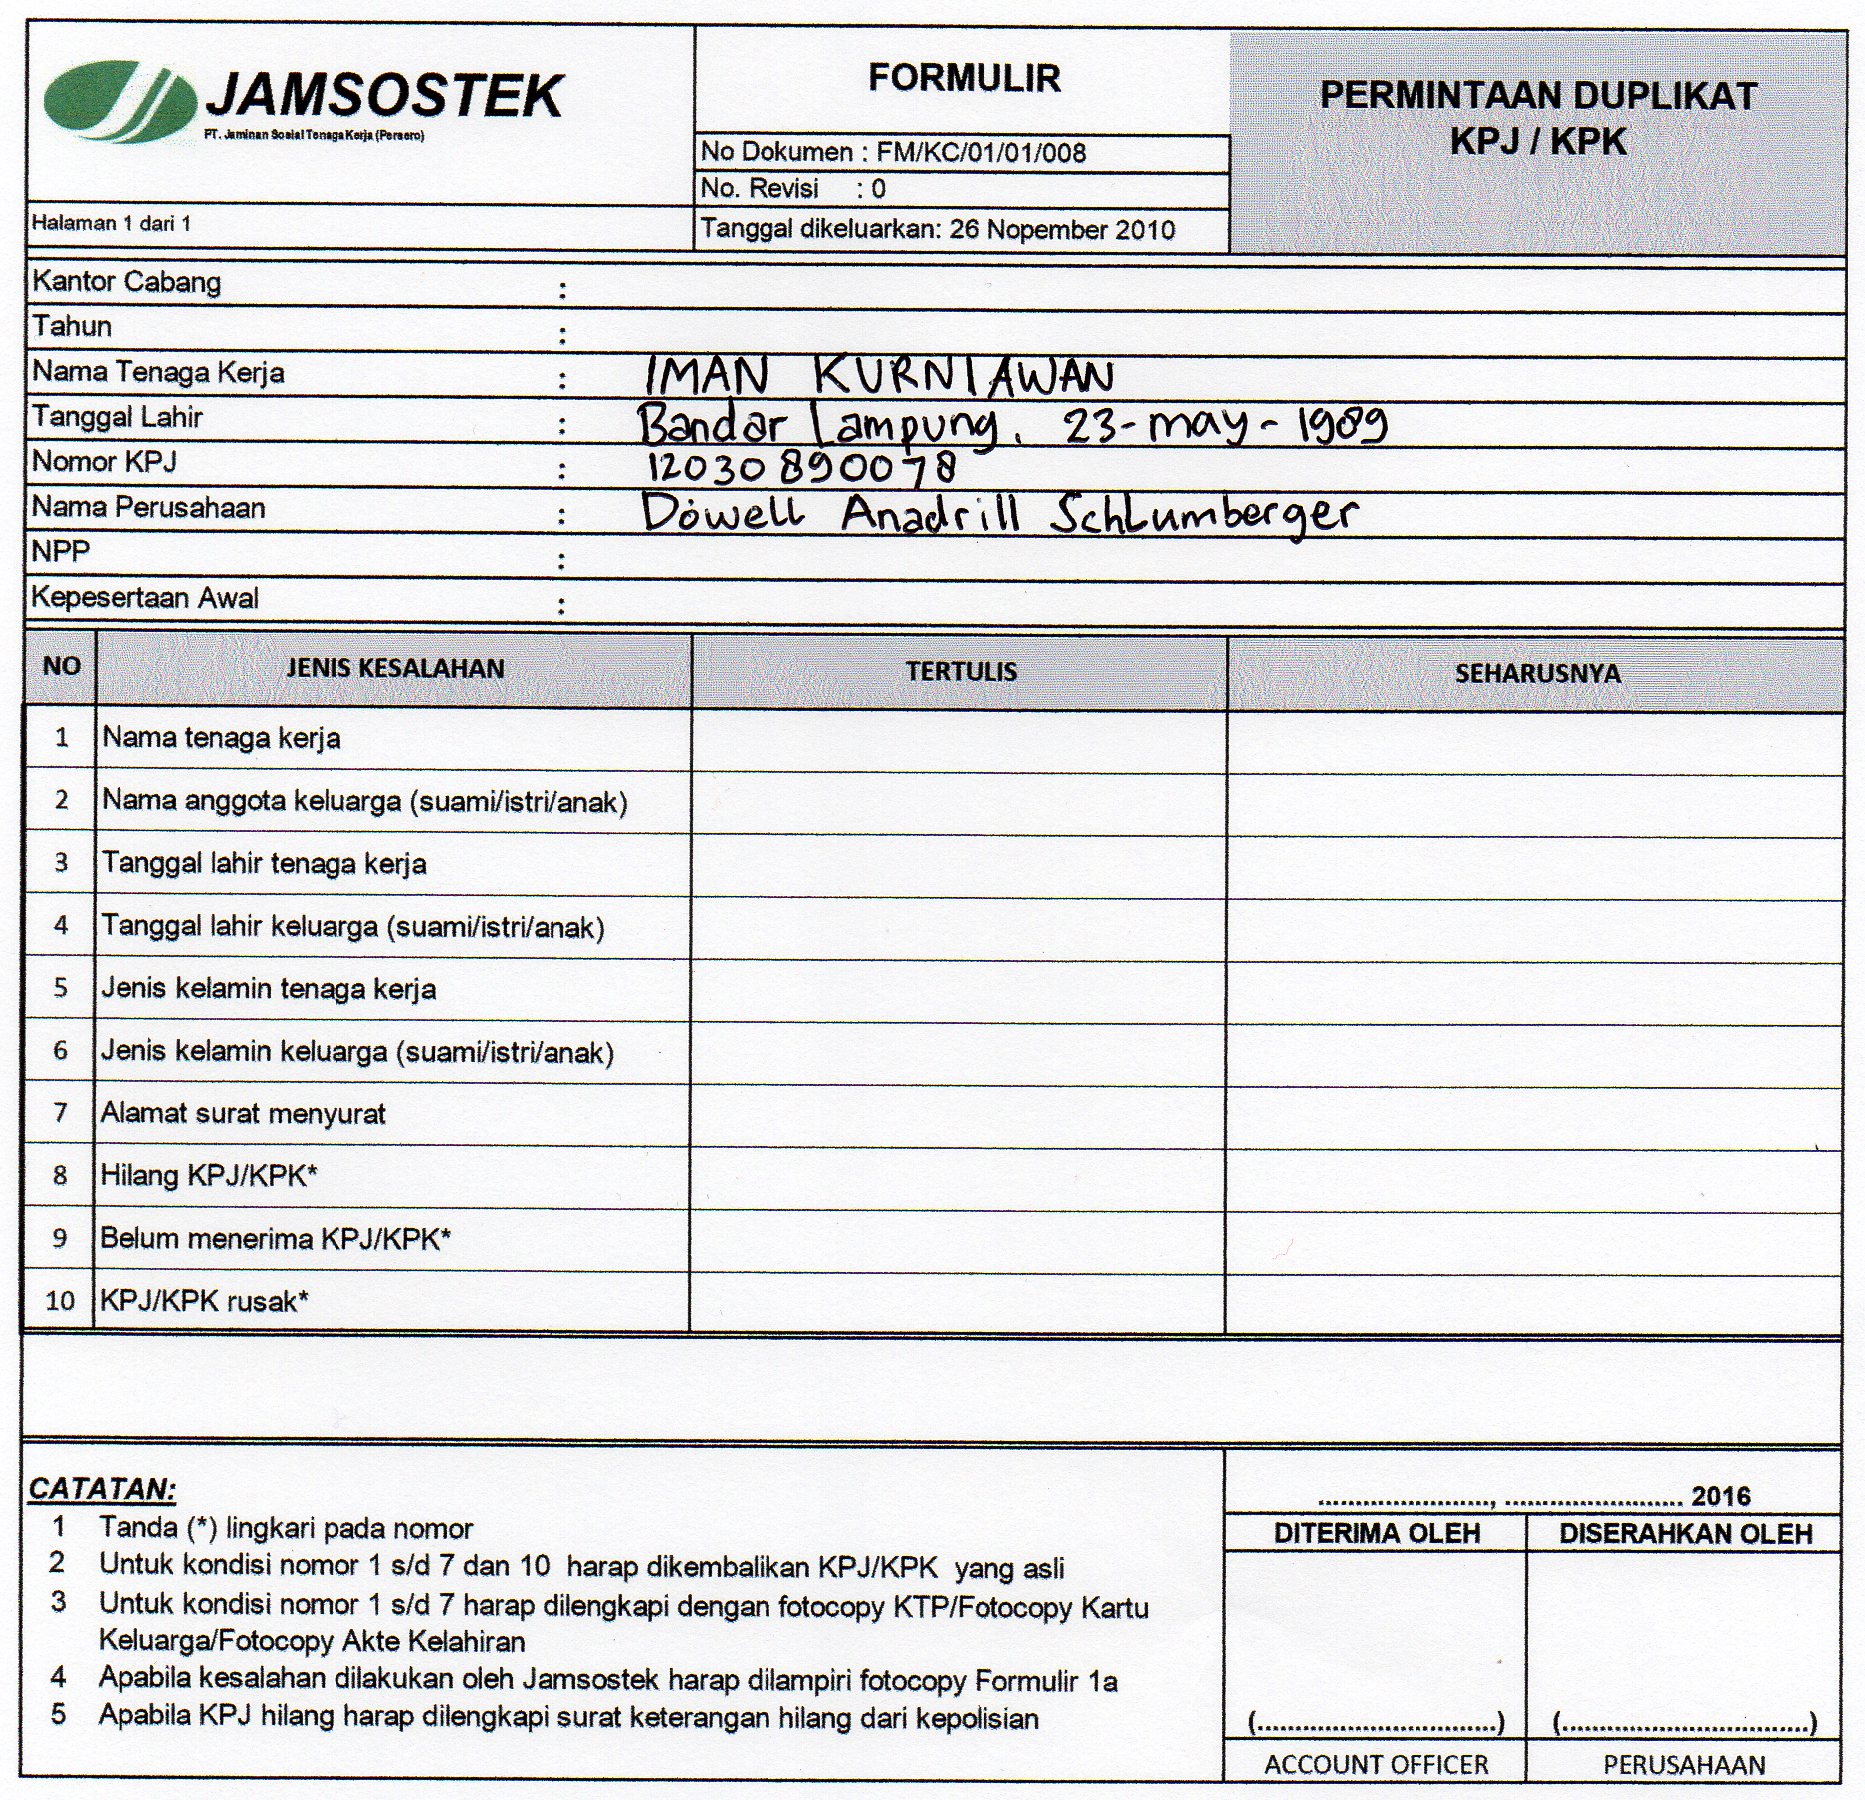 JAMSOSTEK
PT. Jaminan Sosial Tenaga Kerja (Persero)
Halaman 1 dari 1
FORMULIR
No Dokumen : FM/KC/01/01/008
No. Revisi : 0
Tanggal dikeluarkan: 26 Nopember 2010
PERMINTAAN DUPLIKAT
KPJ / KPK
Kantor Cabang :
Tahun :
Nama Tenaga Kerja : IMAN KURNIAWAN
Tanggal Lahir : Bandar Lampung, 23-may-1989
Nomor KPJ : 12030890078
Nama Perusahaan : Dowell Anadrill Schlumberger
NPP :
Kepesertaan Awal :
NO JENIS KESALAHAN TERTULIS SEHARUSNYA
1 Nama tenaga kerja
2 Nama anggota keluarga (suami/istri/anak)
3 Tanggal lahir tenaga kerja
4 Tanggal lahir keluarga (suami/istri/anak)
5 Jenis kelamin tenaga kerja
6 Jenis kelamin keluarga (suami/istri/anak)
7 Alamat surat menyurat
8 Hilang KPJ/KPK*
9 Belum menerima KPJ/KPK*
10 KPJ/KPK rusak*
CATATAN:
1 Tanda (*) lingkari pada nomor
2 Untuk kondisi nomor 1 s/d 7 dan 10 harap dikembalikan KPJ/KPK yang asli
3 Untuk kondisi nomor 1 s/d 7 harap dilengkapi dengan fotocopy KTP/Fotocopy Kartu
Keluarga/Fotocopy Akte Kelahiran
4 Apabila kesalahan dilakukan oleh Jamsostek harap dilampiri fotocopy Formulir 1a
5 Apabila KPJ hilang harap dilengkapi surat keterangan hilang dari kepolisian
......................., ........................ 2016
DITERIMA OLEH DISERAHKAN OLEH
(................................) (.................................)
ACCOUNT OFFICER PERUSAHAAN